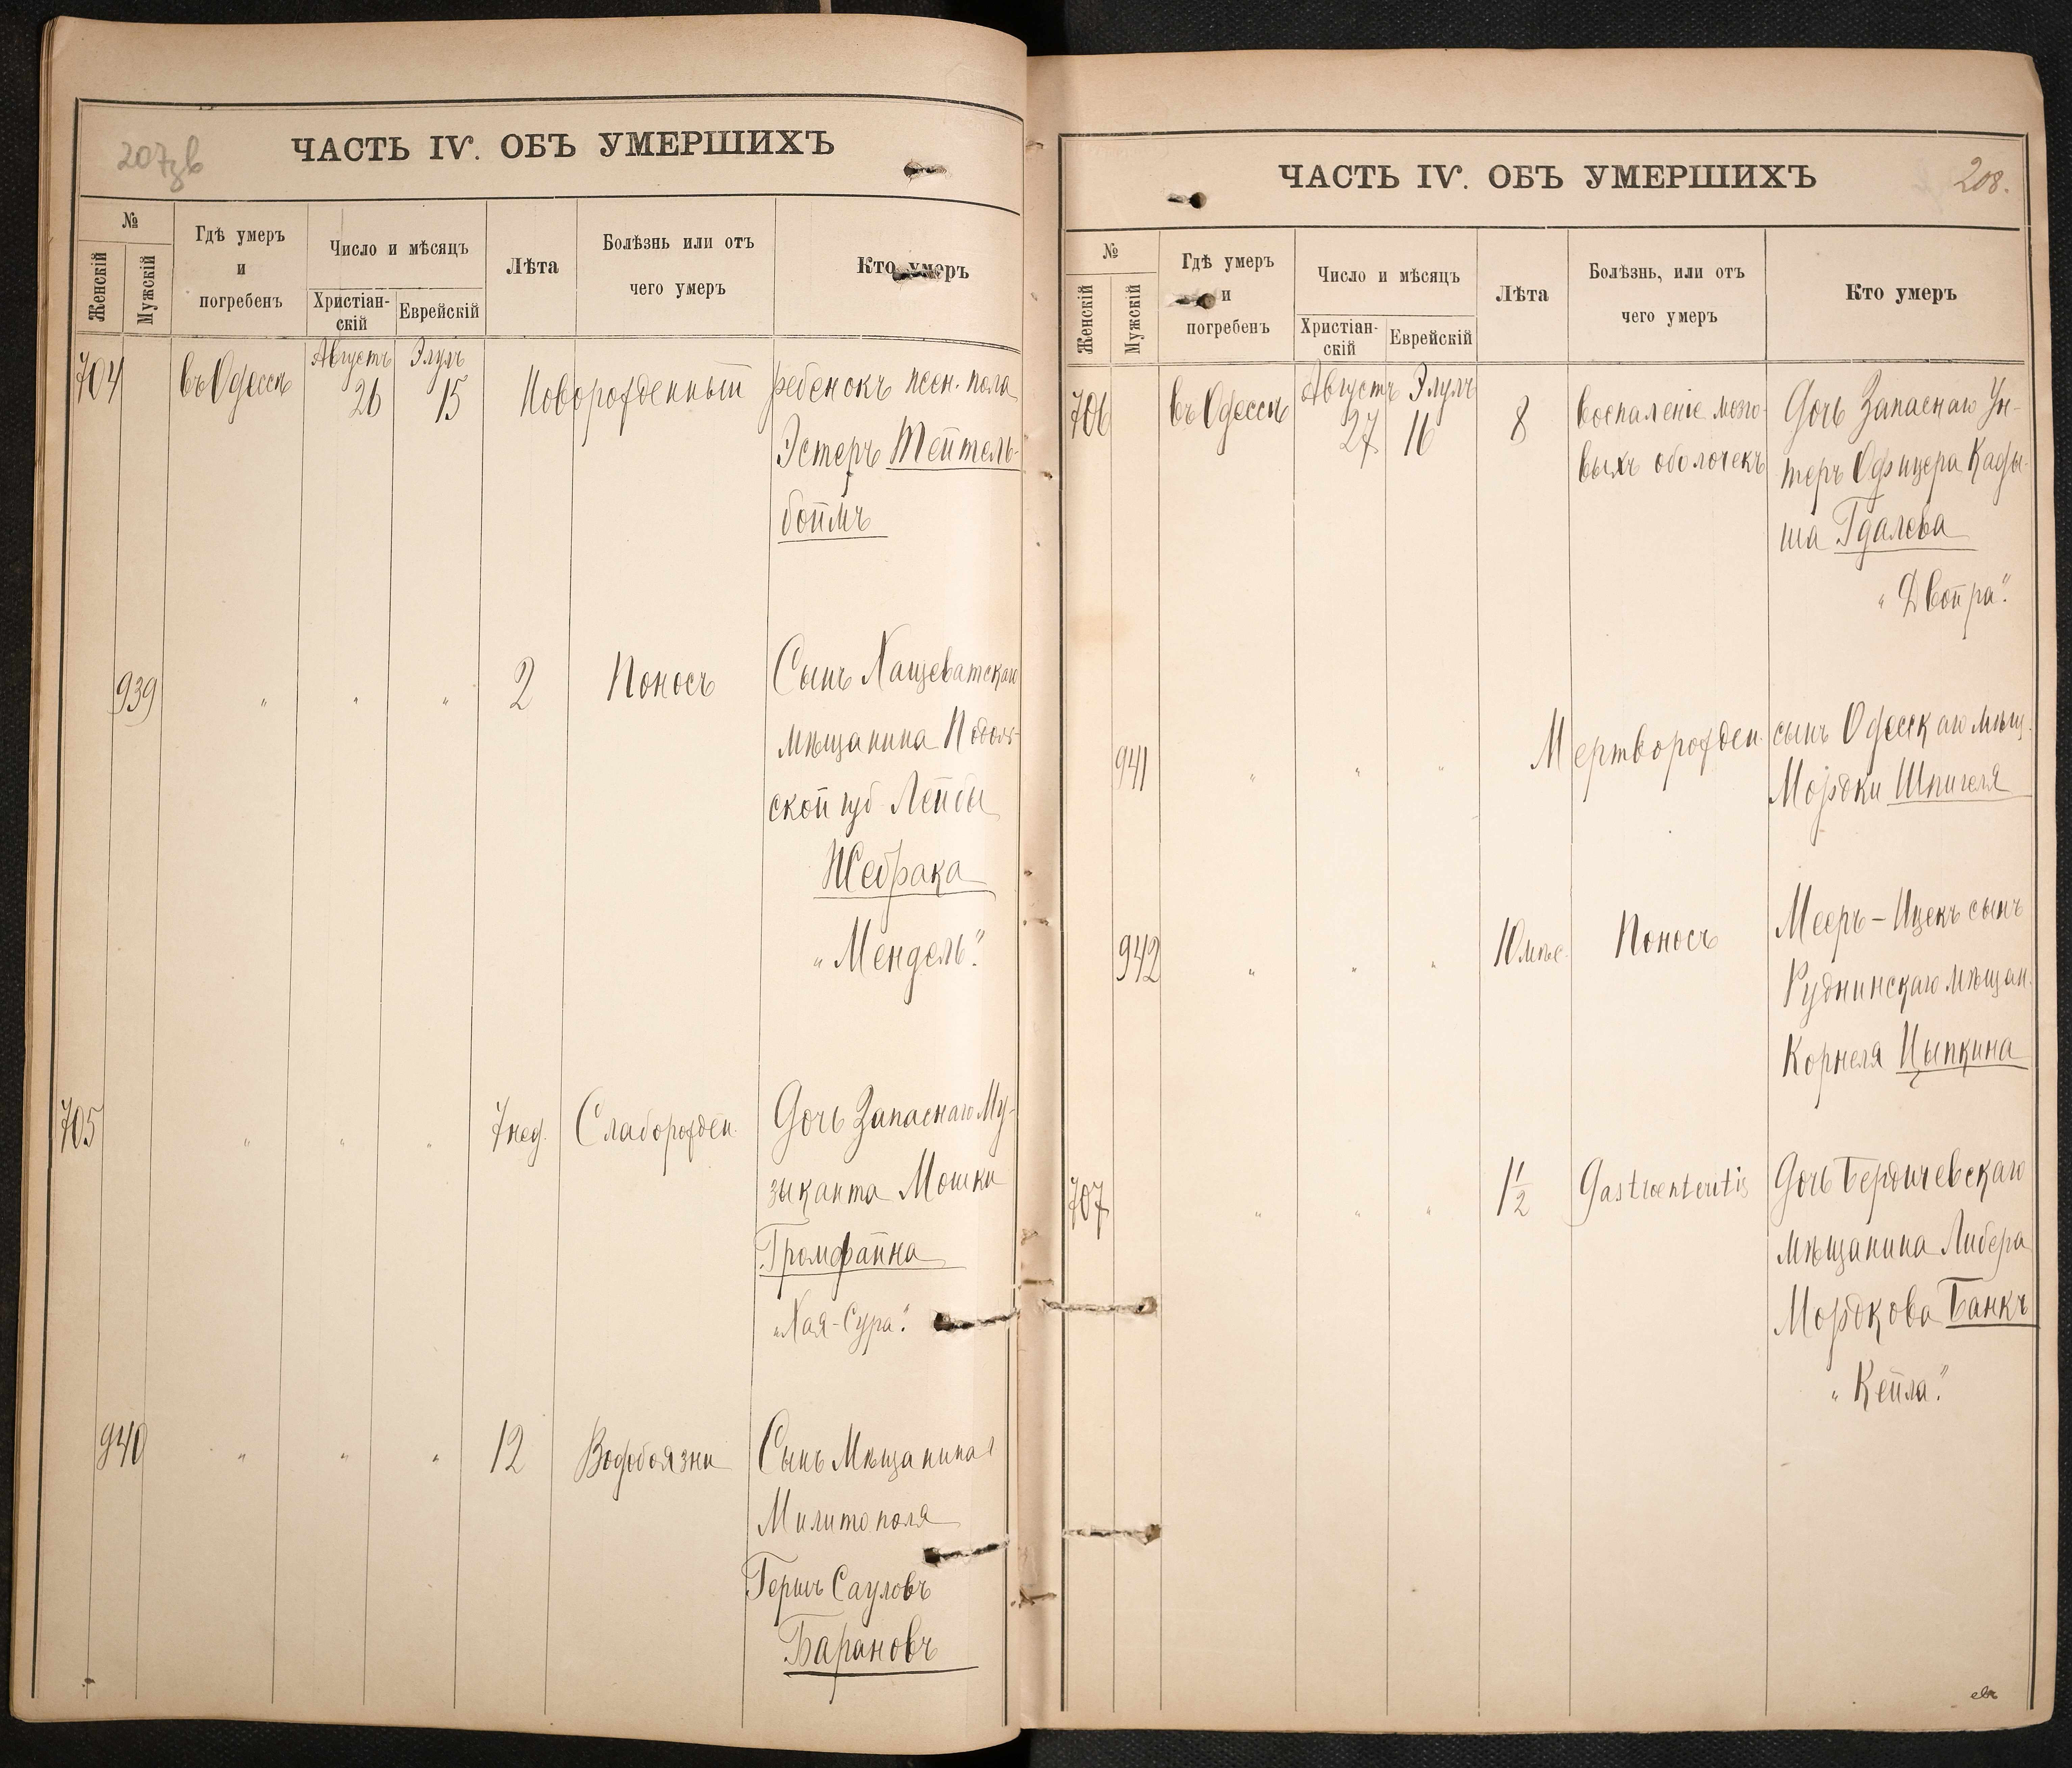 207зв
ЧАСТЬ IV. ОБЪ УМЕРШИХЪ
№
Женскій
Мужскій
Гдѣ умеръ
и
погребенъ
Число и мѣсяцъ
Христіан-
скій
Еврейскій
Лѣта
Болѣзнь или отъ
чего умеръ
Кто умеръ
704 въ Одессѣ Августъ 26 Элулъ 15 Новорожденный ребенокъ жен. пола
Эстеръ Тейтель-
боймъ
939 " " " 2 Поносъ Сынъ Хащеватскаго
мѣщанина Подоль-
ской губ. Лейбы
Жебрака
"Мендель".
705 " " " 7 нед. Слаборожден. Дочь Запаснаго Му-
зыканта Мошки
Громфайна
"Хая-Сура".
940 " " " 12 Водобоязни Сынъ Мѣщанина
Милитополя
Гершъ Сауловъ
Барановъ
208.
ЧАСТЬ IV. ОБЪ УМЕРШИХЪ
№
Женскій
Мужскій
Гдѣ умеръ
и
погребенъ
Число и мѣсяцъ
Христіан-
скій
Еврейскій
Лѣта
Болѣзнь, или отъ
чего умеръ
Кто умеръ
706 въ Одессѣ Августъ 27 Элулъ 16 8 воспаленіе мозго- Дочь Запаснаго Ун-
выхъ оболочекъ теръ Офицера Кады-
ша Гдалева
"Двойра".
941 " " " Мертворожден. сынъ Одесскаго мѣщ.
Мордки Шпигеля
942 " " " 10 мѣс. Поносъ Мееръ-Ицекъ сынъ
Руднинскаго мѣщан.
Корнеля Цыпкина
707 " " " 1 1/2 Gastroenteritis Дочь Бердичевскаго
мѣщанина Либера
Мордкова Банкъ
"Кейла".